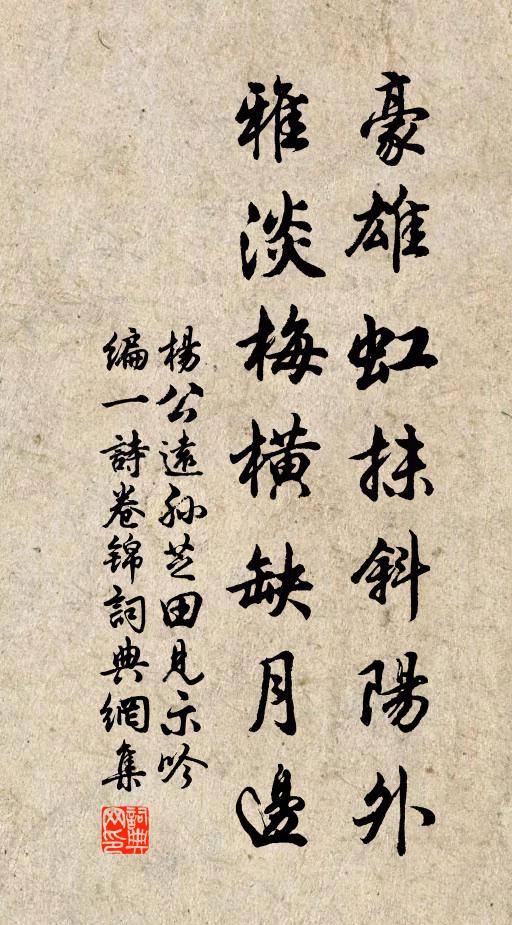 豪雄虹抹斜陽外
雅淡梅橫缺月邊
楊公遠孫芝田見示吟
編一詩卷锦詞典網集
詞典网印